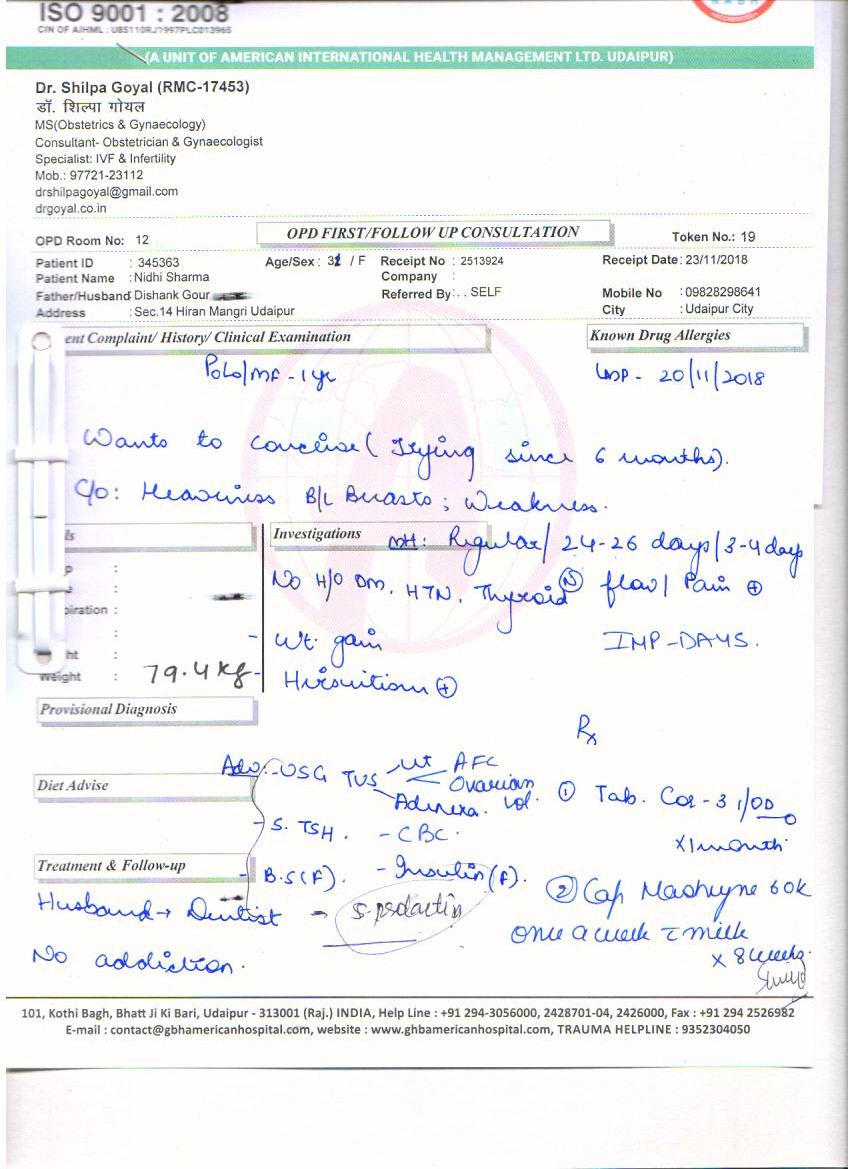 ISO 9001 : 2008
CIN OF AIHML : U85110RJ1997PLC013965
(A UNIT OF AMERICAN INTERNATIONAL HEALTH MANAGEMENT LTD. UDAIPUR)
Dr. Shilpa Goyal (RMC-17453)
डॉ. शिल्पा गोयल
MS(Obstetrics & Gynaecology)
Consultant- Obstetrician & Gynaecologist
Specialist: IVF & Infertility
Mob.: 97721-23112
drshilpagoyal@gmail.com
drgoyal.co.in
OPD Room No: 12 OPD FIRST/FOLLOW UP CONSULTATION Token No.: 19
Patient ID : 345363 Age/Sex : / F Receipt No : 2513924 Receipt Date : 23/11/2018
Patient Name : Nidhi Sharma Company :
Father/Husband Dishank Gour Referred By: . . SELF Mobile No : 09828298641
Address : Sec.14 Hiran Mangri Udaipur City : Udaipur City
ent Complaint/ History/ Clinical Examination Known Drug Allergies
P0L0/MF - 1 yr LMP - 20/11/2018
Wants to conceive (Trying since 6 months).
C/o: Heaviness B/L Breasts ; Weakness.
ls Investigations MH: Regular/ 24-26 days/3-4 days
No H/O DM, HTN, Thyroid (N) flow/ Pain (+)
piration :
- Wt. gain IMP-DAYS.
ht :
Weight : 79.4 kg - Hirsuitism (+)
Provisional Diagnosis
Rx
Adv:- USG TVS Ut AFC
Ovarian vol.
Adenexa.
Diet Advise
① Tab. Cor-3 1/OD
x 1 month
- S. TSH. - CBC.
Treatment & Follow-up
- B.S(F). - Insulin (F).
Husband → Dentist - S. prolactin
② Cap 60K
once a week c milk
x 8 weeks.
No addiction.
101, Kothi Bagh, Bhatt Ji Ki Bari, Udaipur - 313001 (Raj.) INDIA, Help Line : +91 294-3056000, 2428701-04, 2426000, Fax : +91 294 2526982
E-mail : contact@gbhamericanhospital.com, website : www.ghbamericanhospital.com, TRAUMA HELPLINE : 9352304050